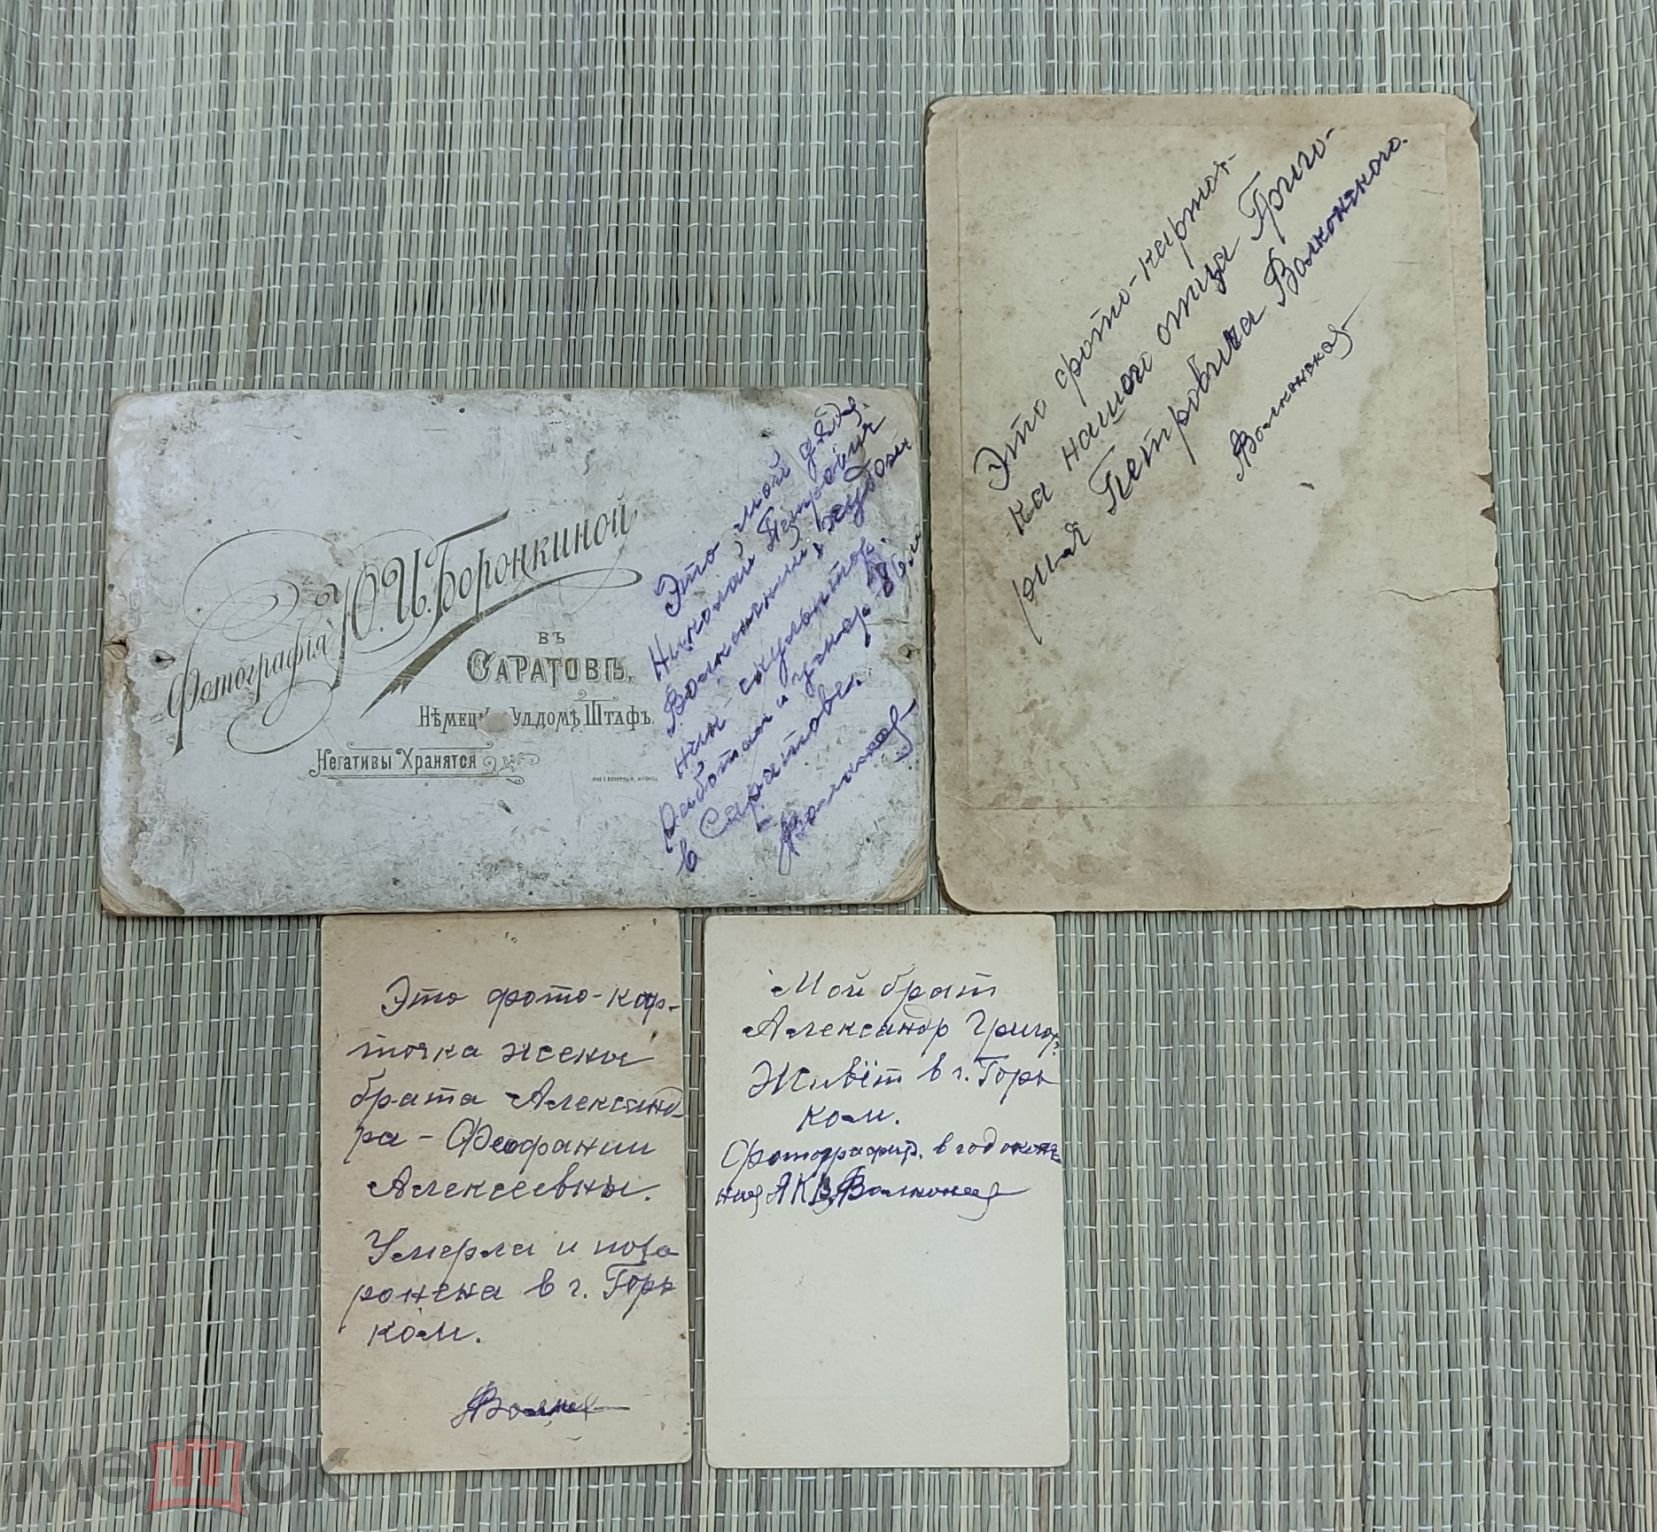 Фотографія
Ю. И. Боронкиной
въ
Саратовѣ,
Негативы Хранятся
Это мой дядя.
Николай Петрович
Волконский, худож
ник-скульптор.
Работал и умер
в Саратове.
Это фото-карточ-
ка нашего отца Григо-
рия Петровича Волконского.
АВолконская
Это фото-кар-
точка жены
брата Александ
ра - Феофании
Алексеевны.
Умерла и похо
ронена в г. Горь
ком.
Мой брат
Александр Григор.
Живёт в г. Горь
ком.
Фотографир. в год оконч
ния
АВолконская
мешок